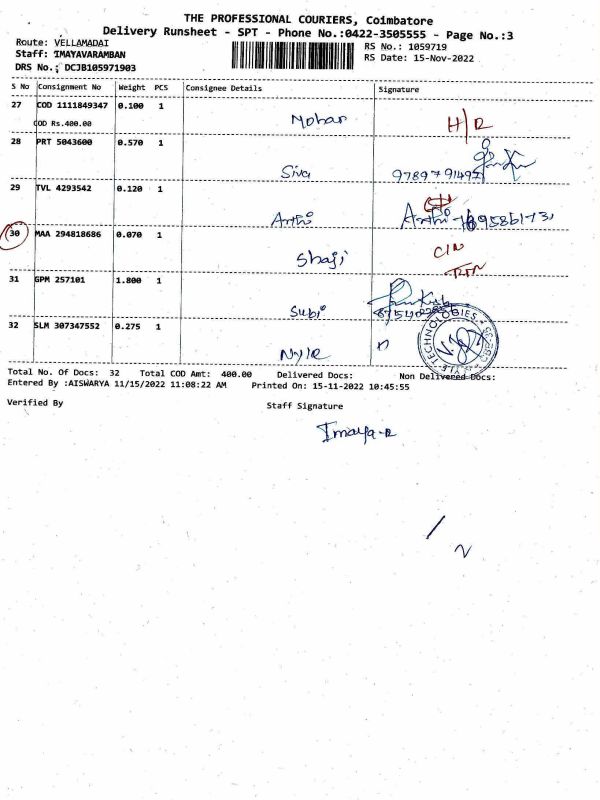 THE PROFESSIONAL COURIERS, Coimbatore
Delivery Runsheet - SPT - Phone No.:0422-3505555 - Page No.:3
Route: VELLAMADAI
RS No.: 1059719
Staff: IMAYAVARAMBAN
RS Date: 15-Nov-2022
DRS No.: DCJB105971903
S No Consignment No Weight PCS Consignee Details Signature
27 COD 1111849347 0.100 1
COD Rs.400.00 Mohan H/R
28 PRT 5043600 0.570 1
Siva
29 TVL 4293542 0.120 1
Arthi Arthi
30 MAA 294818686 0.070 1
Shaji
31 GPM 257101 1.800 1
Subi
32 SLM 307347552 0.275 1
Total No. Of Docs: 32 Total COD Amt: 400.00 Delivered Docs: Non Delivered Docs:
Entered By :AISWARYA 11/15/2022 11:08:22 AM Printed On: 15-11-2022 10:45:55
Verified By Staff Signature